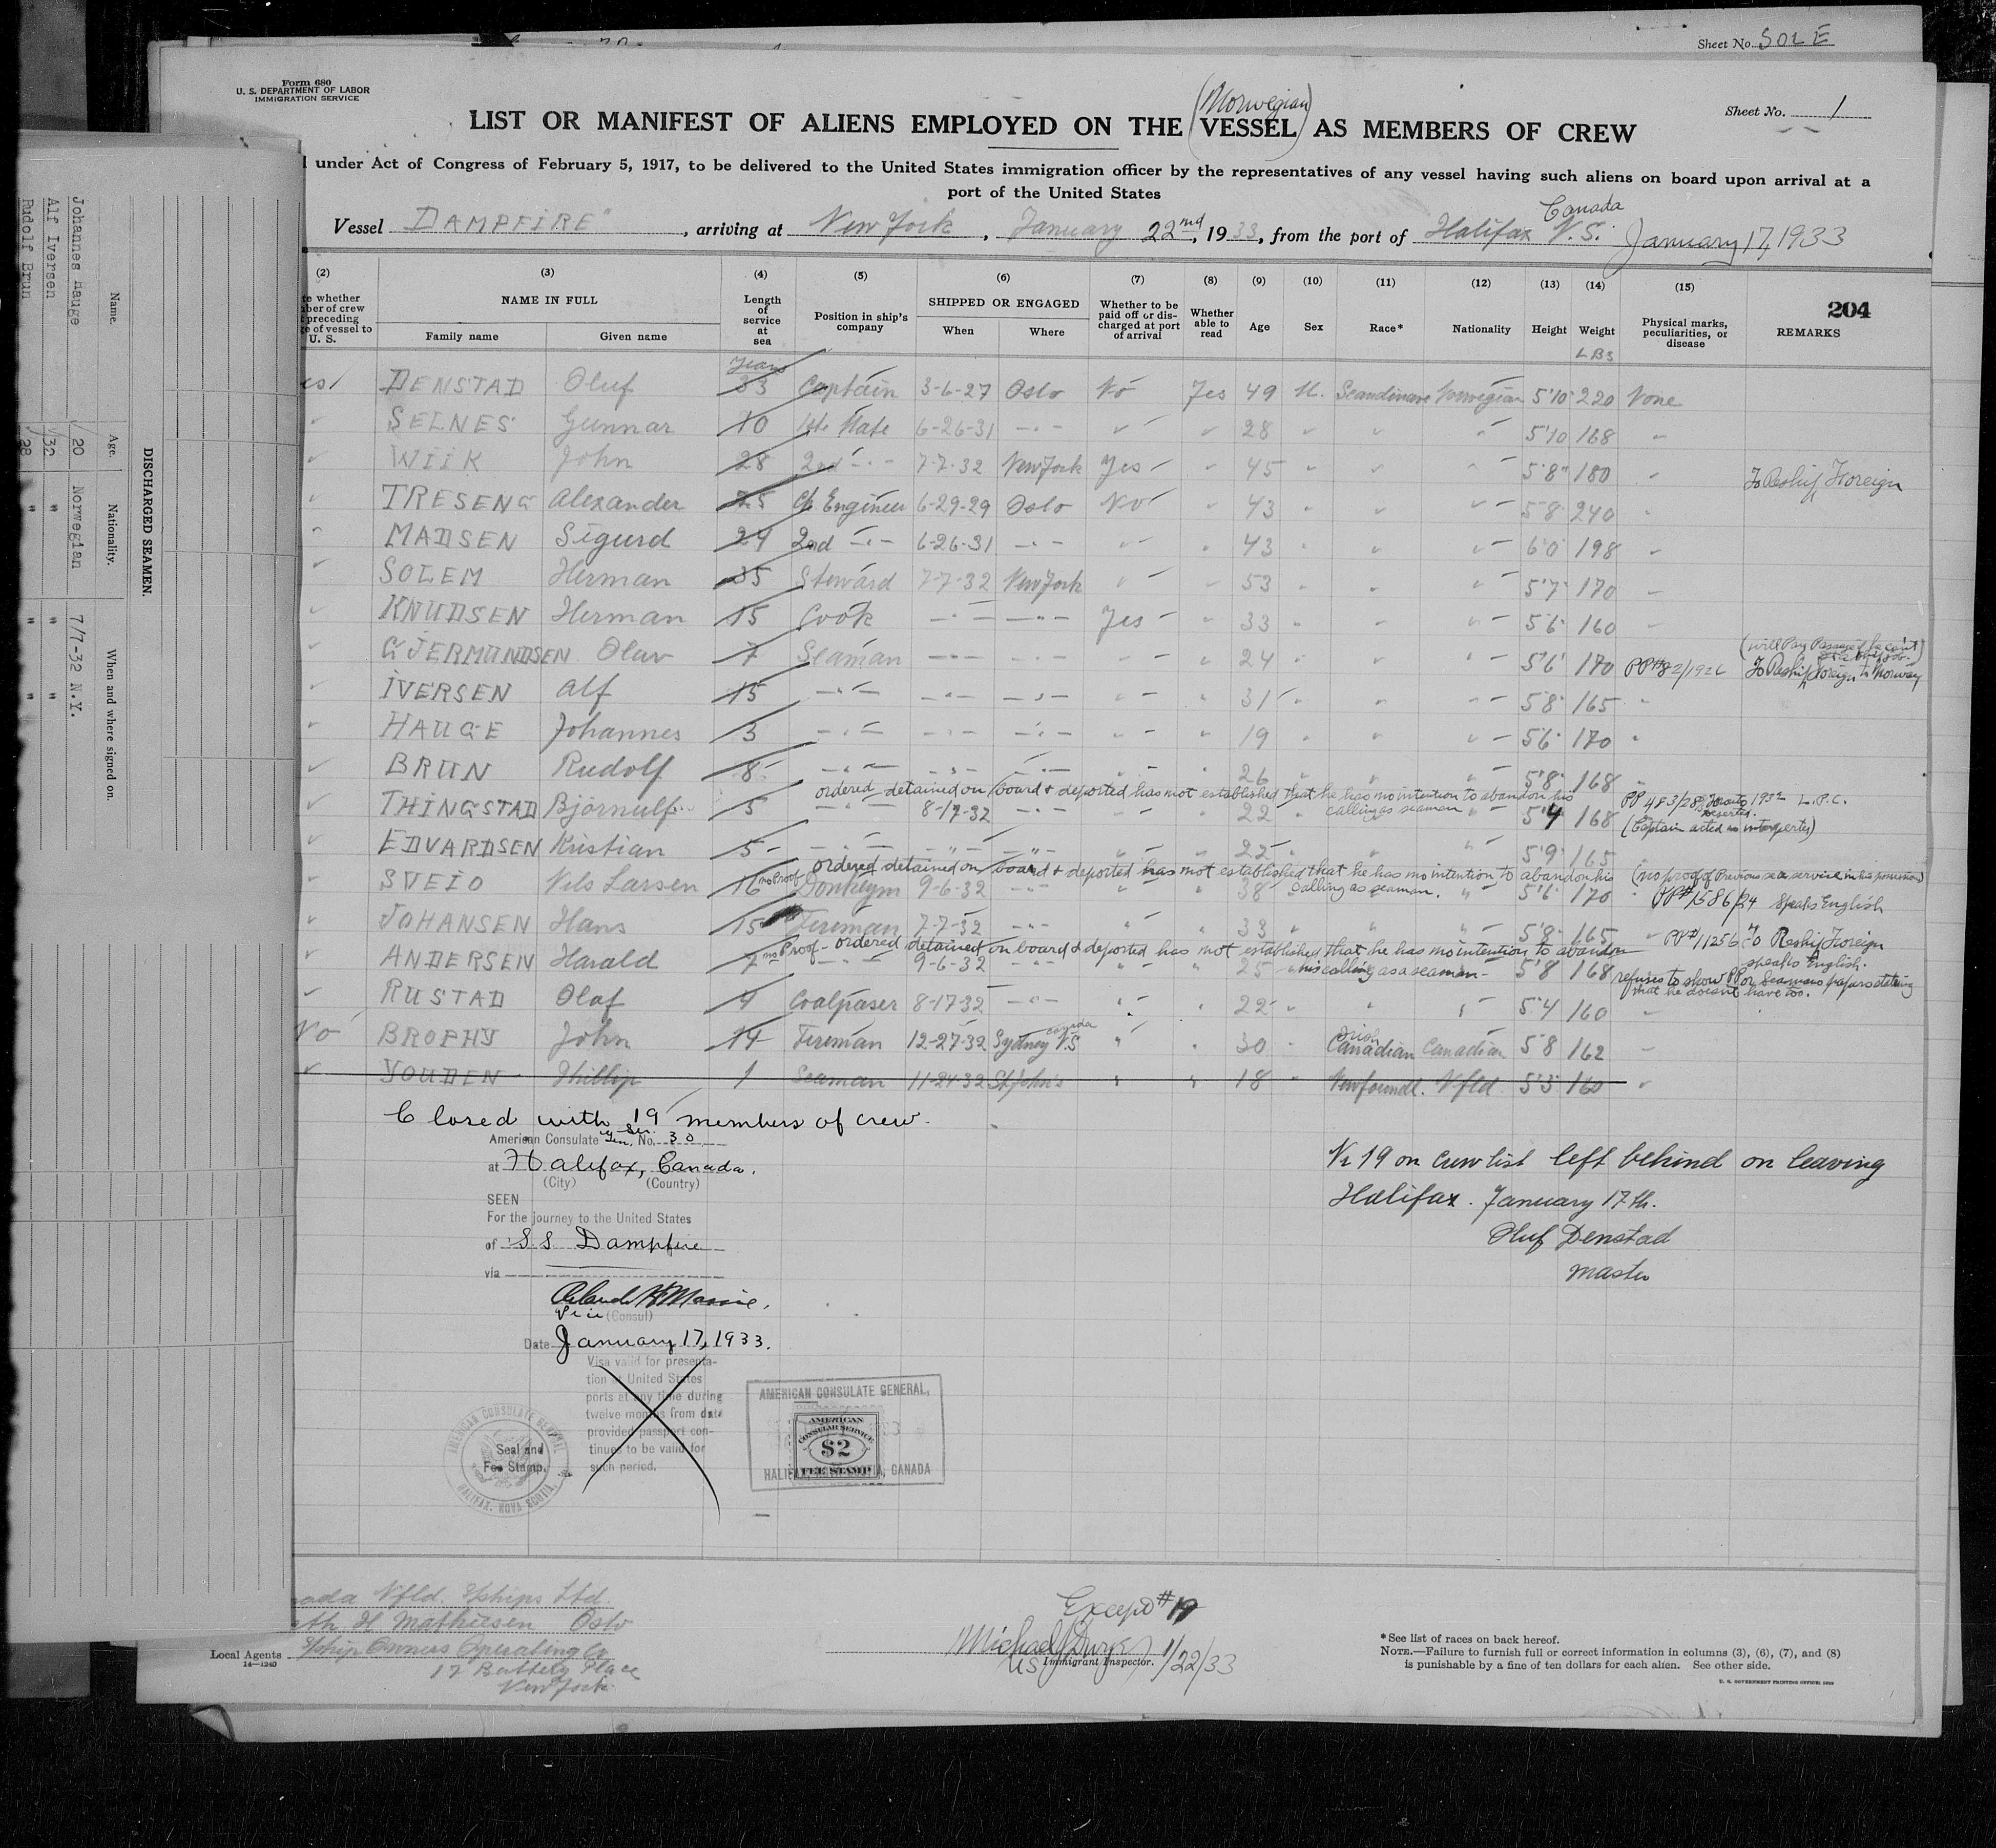 Sheet No. SOLE
Form 680
U. S. DEPARTMENT OF LABOR
IMMIGRATION SERVICE
Sheet No. 1
(Norwegian)
LIST OR MANIFEST OF ALIENS EMPLOYED ON THE (VESSEL) AS MEMBERS OF CREW
under Act of Congress of February 5, 1917, to be delivered to the United States immigration officer by the representatives of any vessel having such aliens on board upon arrival at a
port of the United States
Canada
Vessel DAMPFIRE", arriving at New York, January 22nd, 1933, from the port of Halifax N.S. January 17, 1933
(2) (3) (4) (5) (6) (7) (8) (9) (10) (11) (12) (13) (14) (15) 204
NAME IN FULL
Family name Given name
Length of service at sea
Position in ship's company
SHIPPED OR ENGAGED
When Where
Whether to be paid off or discharged at port of arrival
Whether able to read
Age Sex Race* Nationality Height Weight
Physical marks, peculiarities, or disease
REMARKS
Years LBS
DENSTAD Oluf 33 Captain 3-6-27 Oslo No Yes 49 M. Scandinave Norwegian 5'10 220 None
✓ SELNES Gunnar 10 1st Mate 6-26-31 -"- ✓ ✓ 28 ✓ ✓ ✓ 5'10 168 -
✓ WIIK John 28 2nd -"- 7-7-32 New York Yes " 45 " " " 5'8" 180 To Reship Foreign
✓ TRESENG Alexander 25 Ch. Engineer 6-29-29 Oslo No " 43 " " " 5'8 240
MADSEN Sigurd 29 2nd -"- 6-26-31 -"- " " 43 " " " 6'0 198
✓ SOLEM Herman 35 Steward 7-7-32 New York " " 53 " " " 5'7 170
✓ KNUDSEN Herman 15 Cook -"- -"- Yes " 33 " " " 5'6 160
(will Pay Passage
✓ GJERMUNDSEN Olav 7 Seaman -"- -"- " " 24 " " " 5'6 170 /1926 To Reship Foreign to Norway
✓ IVERSEN Alf 15 -"- -"- -"- " " 31 " " " 5'8 165
✓ HAUGE Johannes 3 -"- -"- -"- " " 19 " " " 5'6 170
✓ BRUN Rudolf 8 -"- -"- -"- " " 26 " " " 5'8 168
ordered detained on board & deported has not established that he has no intention to abandon his calling as seaman
PP 483/28 1932 L.P.C.
✓ THINGSTAD Björnulf 5 -"- 8-17-32 -"- " " 22 " " " 5'4 168 (Captain acted as interpreter)
✓ EDVARDSEN Kristian 5 -"- -"- -"- " " 22 " " " 5'9 165
ordered detained on board & deported has not established that he has no intention to abandon his calling as seaman. (no proof of Previous sea service in his possession)
✓ SVEIO Nils Larsen 16 no Proof Donkeym 9-6-32 -"- " " 38 " " " 5'6 170 PP# 1586/24 Speaks English
✓ JOHANSEN Hans 15 Fireman 7-7-32 -"- " " 33 " " " 5'8 165 PP# 11256 To Reship Foreign
no Proof - ordered detained on board & deported has not established that he has no intention to abandon his calling as a seaman -
speaks English.
✓ ANDERSEN Harald 7 -"- 9-6-32 -"- " " 25 " 5'8 168 refuses to show PP or Seamans papers stating that he doesnt have too.
✓ RUSTAD Olaf 4 Coalpaser 8-17-32 -"- " " 22 " " " 5'4 160
No BROPHY John 14 Fireman 12-27-32 Sydney N.S Canada " " 30 " Irish Canadian Canadian 5'8 162
✓ YOUDEN Phillip 1 Seaman 11-24-32 St John's " " 18 " Newfoundl. Nfld 5'5 160
Closed with 19 members of crew.
American Consulate Gen. Ser. No. 30
at Halifax, Canada.
(City) (Country)
SEEN
For the journey to the United States
of S.S. Dampfire
via
Vice (Consul)
Date January 17, 1933.
Visa valid for presenta-
tion at United States
ports at any time during
twelve months from date
provided passport con-
tinues to be valid for
such period.
Seal and
Fee Stamp.
AMERICAN CONSULATE GENERAL
HALIFAX, NOVA SCOTIA
AMERICAN CONSULATE GENERAL,
AMERICAN
CONSULAR SERVICE
$2
FEE STAMP
HALIFAX, NOVA SCOTIA, CANADA
Nr 19 on Crew list left behind on leaving
Halifax. January 17th.
Oluf Denstad
Master
Nfld. Sships Ltd.
H Mathiesen Oslo
Local Agents Sship Owners Operating Co
14—1240
17 Battery Place
New York
Except # 19
US Immigrant Inspector. 1/22/33
*See list of races on back hereof.
NOTE.—Failure to furnish full or correct information in columns (3), (6), (7), and (8)
is punishable by a fine of ten dollars for each alien. See other side.
U. S. GOVERNMENT PRINTING OFFICE: 1929
DISCHARGED SEAMEN.
Name. Age. Nationality. When and where signed on.
Johannes Hauge 20 Norwegian 7/7-32 N.Y.
Alf Iversen 32 " " "
Rudolf Brun 28 " " "